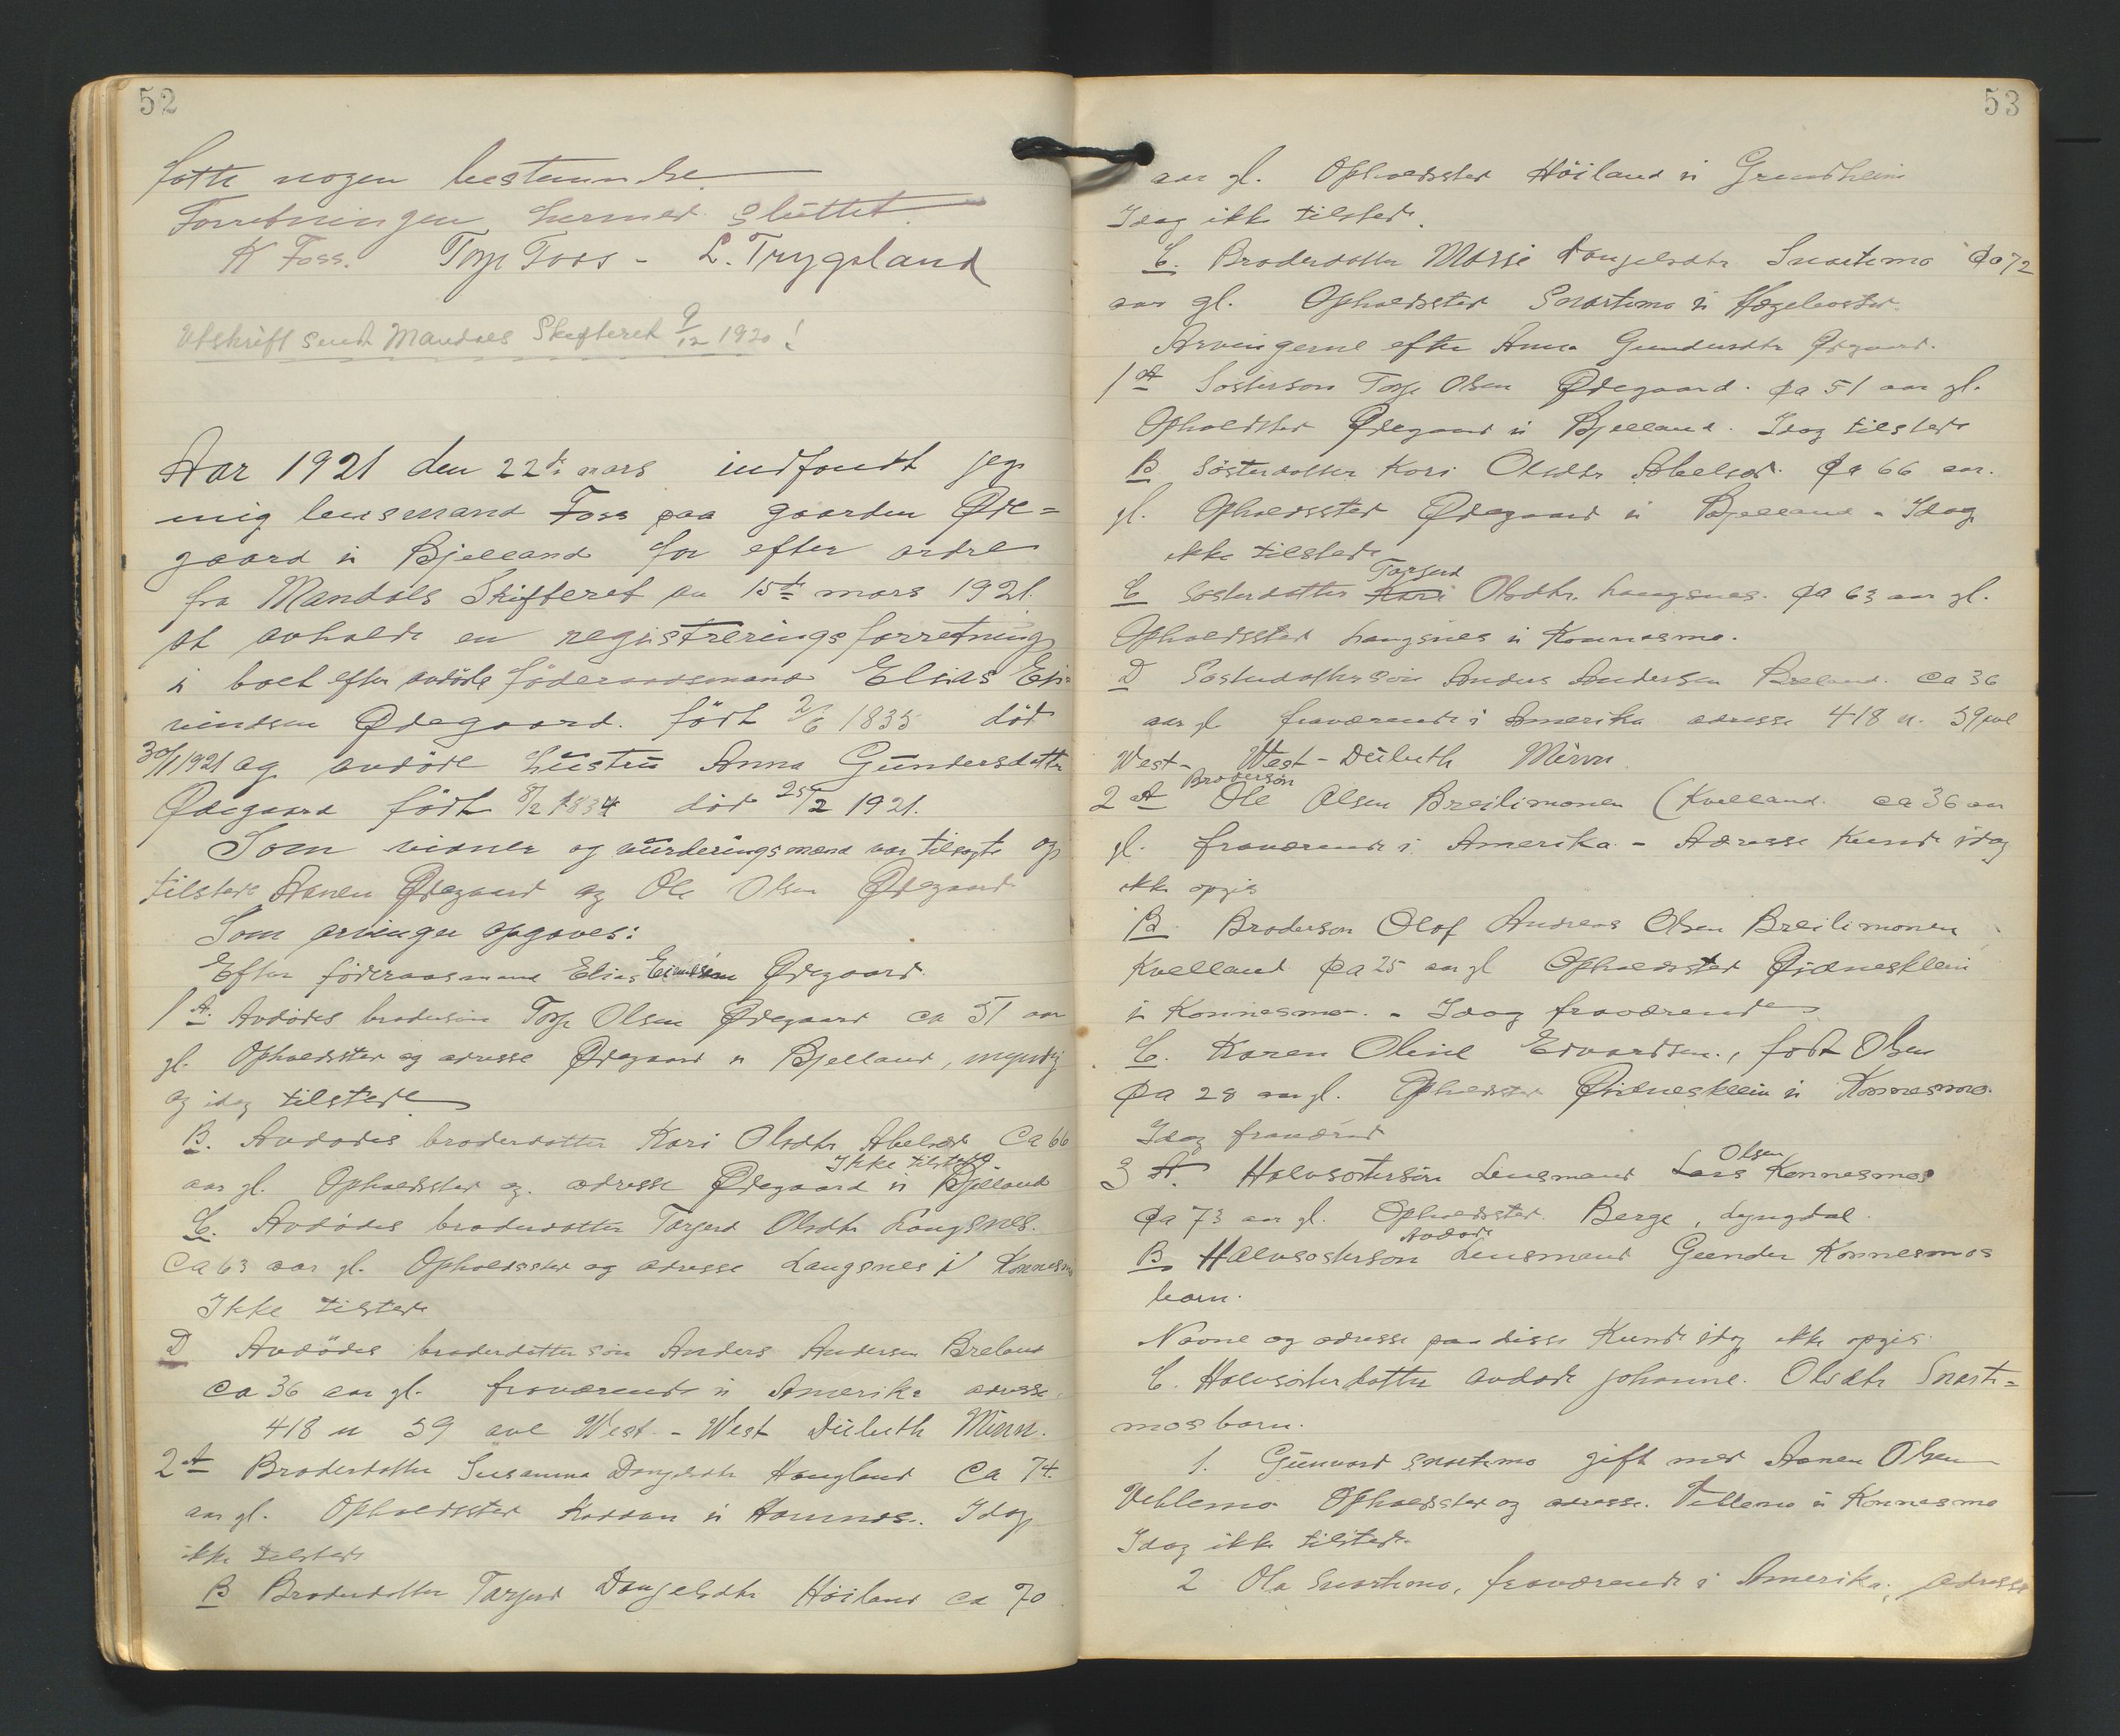 52
fatte nogen bestemmelse
Forretningen hermed sluttet.
K Foss. Torje Foss - L. Trygsland
Utskrift sendt Mandals Skifteret 9/12 1920!
Aar 1921 den 22de mars indfandt jeg
mig lensmand Foss paa gaarden Øde=
gaard i Bjelland for efter ordre
fra Mandals Skifteret av 15de mars 1921
at avholde en registreringsforretning
i boet efter avdöde föderaadsmand Elias Ei=
vindsen Ødegaard. född 2/6 1835 död
30/1 1921 og avdöde hustru Anna Gundersdatter
Ødegaard född 8/2 1834 död 25/2 1921.
Som vidner og vurderingsmænd var tilsagte og
tilstede Aanen Ødegaard og Ole Olsen Ødegaard
Som arvinger opgaves:
Efter föderaasmand Elias Eivindsen Ødegaard.
1 A. Avdödes brodersön Torje Olsen Ødegaard ca 51 aar
gl. Opholdsted og adresse Ødegaard i Bjelland, myndig
og idag tilstede
B. Avdödes broderdatter Kari Olsdtr Abelsæt Ca 66
Ikke tilstede.
aar gl. Opholdssted og adresse Ødegaard i Bjelland
C. Avdödes broderdatter Torjerd Olsdtr Langsnes.
Ca 63 aar gl. Opholdssted og adresse Langsnes i Konnesmo
Ikke tilstede
D Avdödes broderdatter sön Anders Andersen Breland
ca 36 aar gl. fraværende i Amerika adresse
418 n 59 ave West - West Duluth Minn.
2 A Broderdatter Susanna Danjelsdtr Haugland Ca 74.
aar gl. Opholdssted i Idag
ikke tilstede
B Broderdatter Tarjerd Danjelsdtr Höiland ca 70
53
aar gl. Opholdssted Höiland i Grindheim
Idag ikke tilstede.
C. Broderdatter Massi Danjelsdtr Snartemo Ca 72
aar gl. Opholdssted Snartemo i Hægebostad.
Arvingerne efter Anna Gundersdtr Ødegaard.
1 A Sösterson Torje Olsen Ødegaard. Ca 51 aar gl.
Opholdsted Ødegaard i Bjelland. Idag tilstede
B Sösterdatter Kari Olsdtr Abelsæt. Ca 66 aar.
gl. Opholdssted Ødegaard i Bjelland - Idag
ikke tilstede
Torjerd
C Sösterdatter Kari Olsdtr. Langsnes. Ca 63 aar gl.
Opholdssted Langsnes i Konnesmo.
D Sösterdattersön Anders Andersen Breland. Ca 36
aar gl fraværende i Amerika adresse 418 n. 59 ave
West - West - Duluth Minn
Broderson
2 A Ole Olsen Breilimonen (Kvelland. ca 36 aar
gl. fraværende i Amerika - Adresse kunde idag
ikke opgis
B Broderson Olof Andreas Olsen Breilimonen
Kvelland Ca 25 aar gl Opholdssted
i Konnesmo. - Idag fraværende
C. Karen Oline Edvardsen., født Olsen
Ca 28 aar gl. Opholdssted i Konnesmo.
Idag fraværend
Olsen
3 A. Halvsöstersön Lensmand Lars Konnesmo
Ca 73 aar gl. Opholdssted Berge, Lyngdal.
Avdöde
B. Halvsosterson Lensmand Gunder Konnesmos
barn.
Navne og adresse paa disse kunde idag ikke opgis.
C. Halvsösterdatter avdöde Johanne. Olsdtr Snarte=
mos barn.
1. Gunvord Snartemo gift med Aanen Olsen
Veblemo Opholdssted og adresse. Veblemo i Konnesmo
Idag ikke tilstede.
2 Ola Snartemo, fraværende i Amerika, adresse